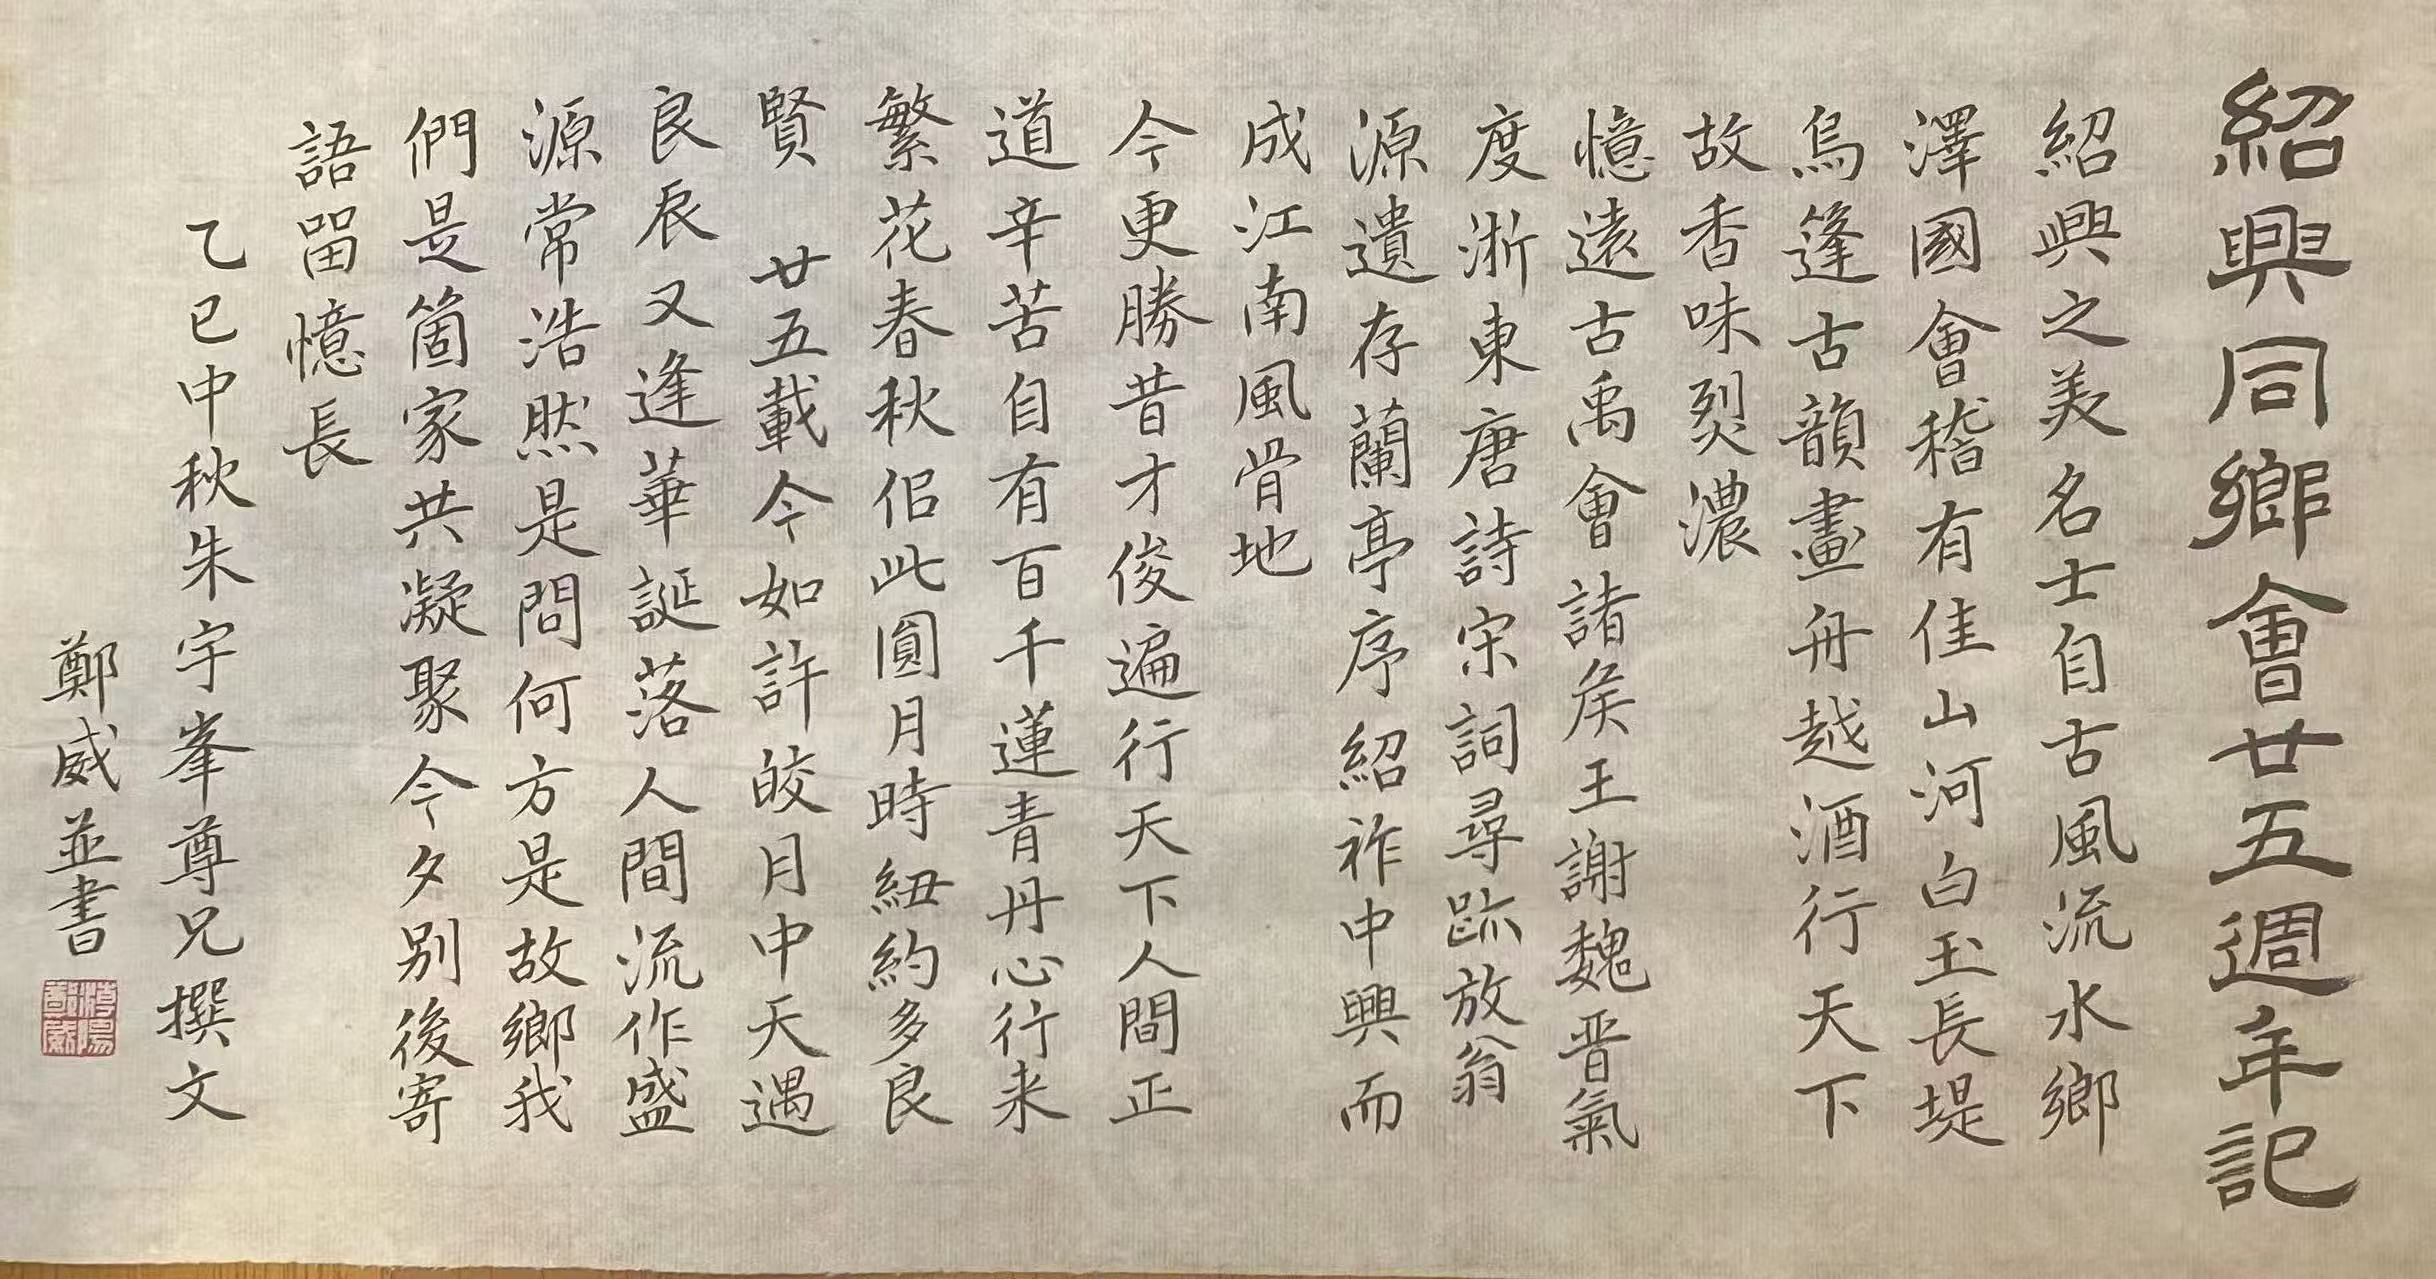 紹興同鄉會廿五週年記
紹興之美名士自古風流水鄉
澤國會稽有佳山河白玉長堤
烏篷古韻畫舟越酒行天下
故香味烈濃
憶遠古禹會諸矦王謝魏晉氣
度浙東唐詩宋詞尋跡放翁
源遺存蘭亭序紹祚中興而
成江南風骨地
今更勝昔才俊遍行天下人間正
道辛苦自有百千蓮青丹心行来
繁花春秋佀此圓月時紐約多良
賢 廿五載今如許皎月中天遇
良辰又逢華誕落人間流作盛
源常浩然是問何方是故鄉我
們是箇家共凝聚今夕別後寄
語留憶長
乙巳中秋朱宇峯尊兄撰文
鄭威並書